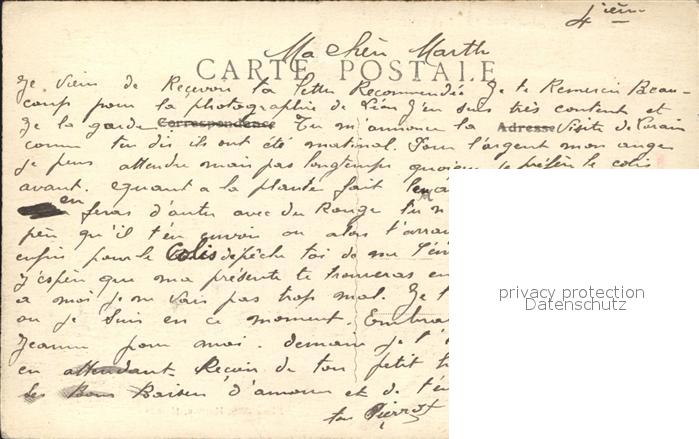 4ième
Ma Chèr Marth
CARTE POSTALE
Je vien de Reçevoir ta lettre Recommandée Je te Remerci Beau-
coup pour la photographie de Léon J'en suis très content et
Je la garde Correspondance Tu m'annonce la Adresse Visite de
comme tu dis ils ont été matinal. Pour l'argent mon ange
je peus attendre mais pas longtemps quoique je préfère le colis
avant. Quant a la plante fait
en feras d'autre avec du Rouge tu
qu'il t'en envoir ou alors
enfin pour le Colis dépêche toi de me
J'espère que ma présente te trouveras en
a moi je ne vais pas trop mal. Je
ou je suis en ce moment. Embra
Jeanne pour moi. demain je
en attendant Reçoir de ton petit
les Bons Baiser d'amour et de
ton Pierrot
privacy protection
Datenschutz